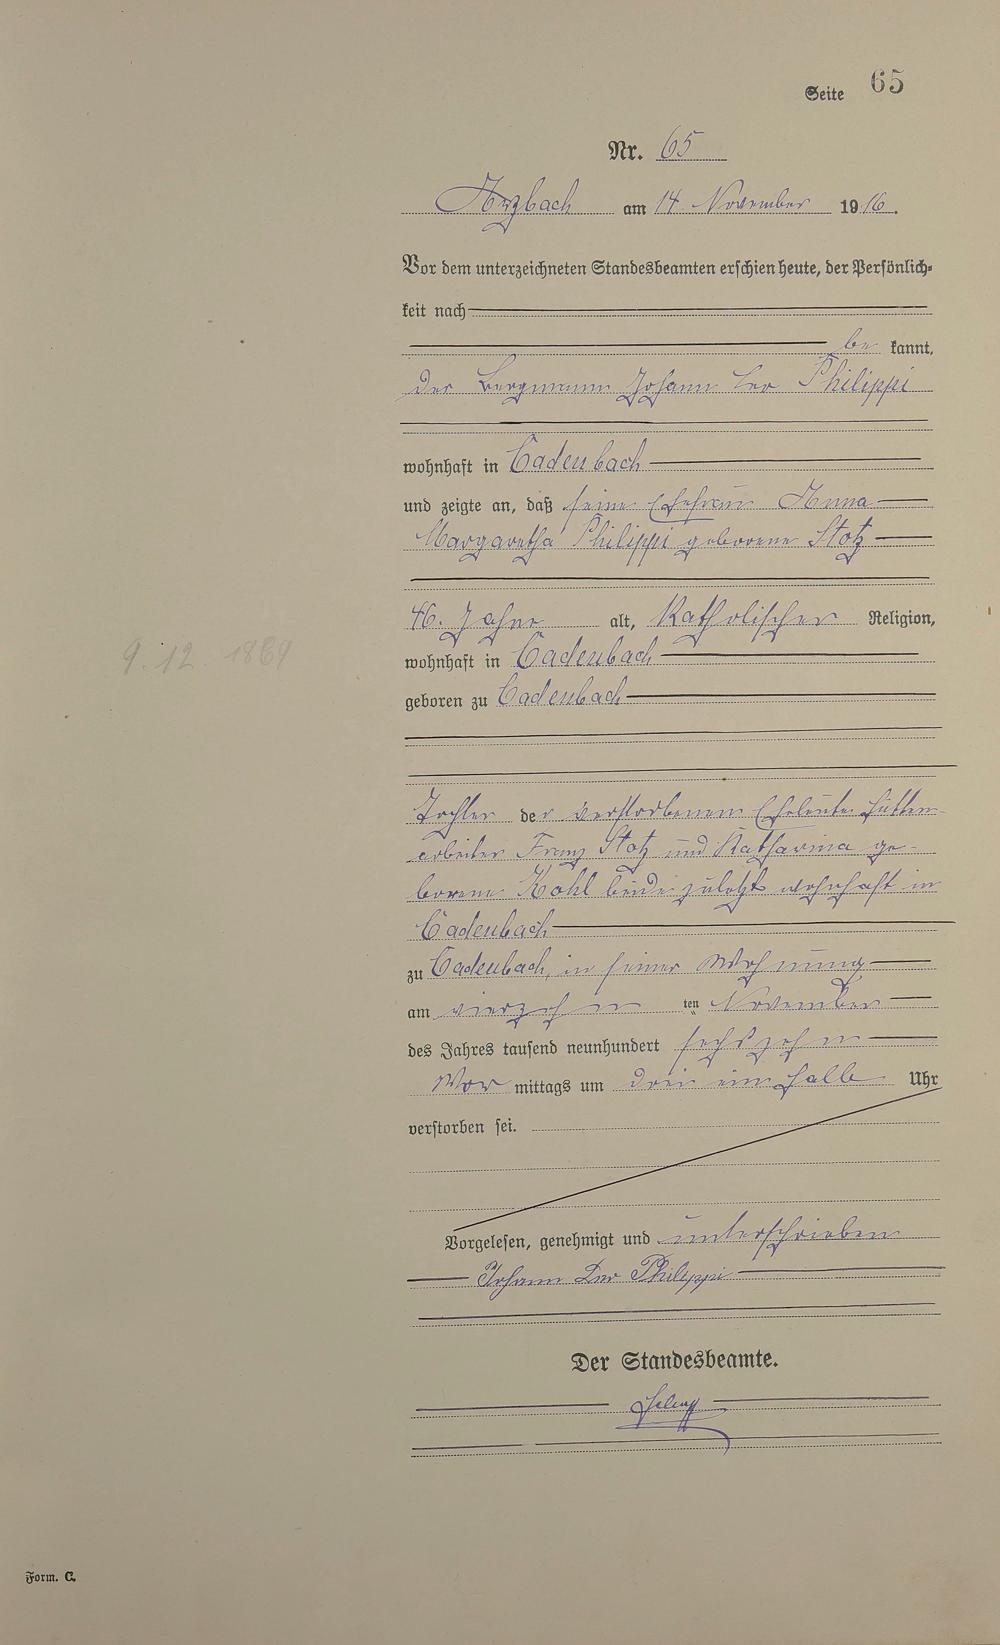 Seite 65
Nr. 65
Arzbach am 14 November 1916.
Vor dem unterzeichneten Standesbeamten erschien heute, der Persönlich-
keit nach
be kannt,
der Bergmann Johann Leo Philippi
wohnhaft in Cadenbach
und zeigte an, daß seine Ehefrau Anna
Margaretha Philippi geborene Stotz
46. Jahre alt, Katholischer Religion,
wohnhaft in Cadenbach
9. 12. 1869
geboren zu Cadenbach
Tochter der verstorbenen Eheleute Hütten-
arbeiter Franz Stotz und Katharina ge-
borene Kohl beide zuletzt wohnhaft in
Cadenbach
zu Cadenbach, in seiner Wohnung
am vierzehn ten November
des Jahres tausend neunhundert sechszehn
Vor mittags um drei ein halb Uhr
verstorben sei.
Vorgelesen, genehmigt und unterschrieben
Johann Leo Philippi
Der Standesbeamte.
Form. C.